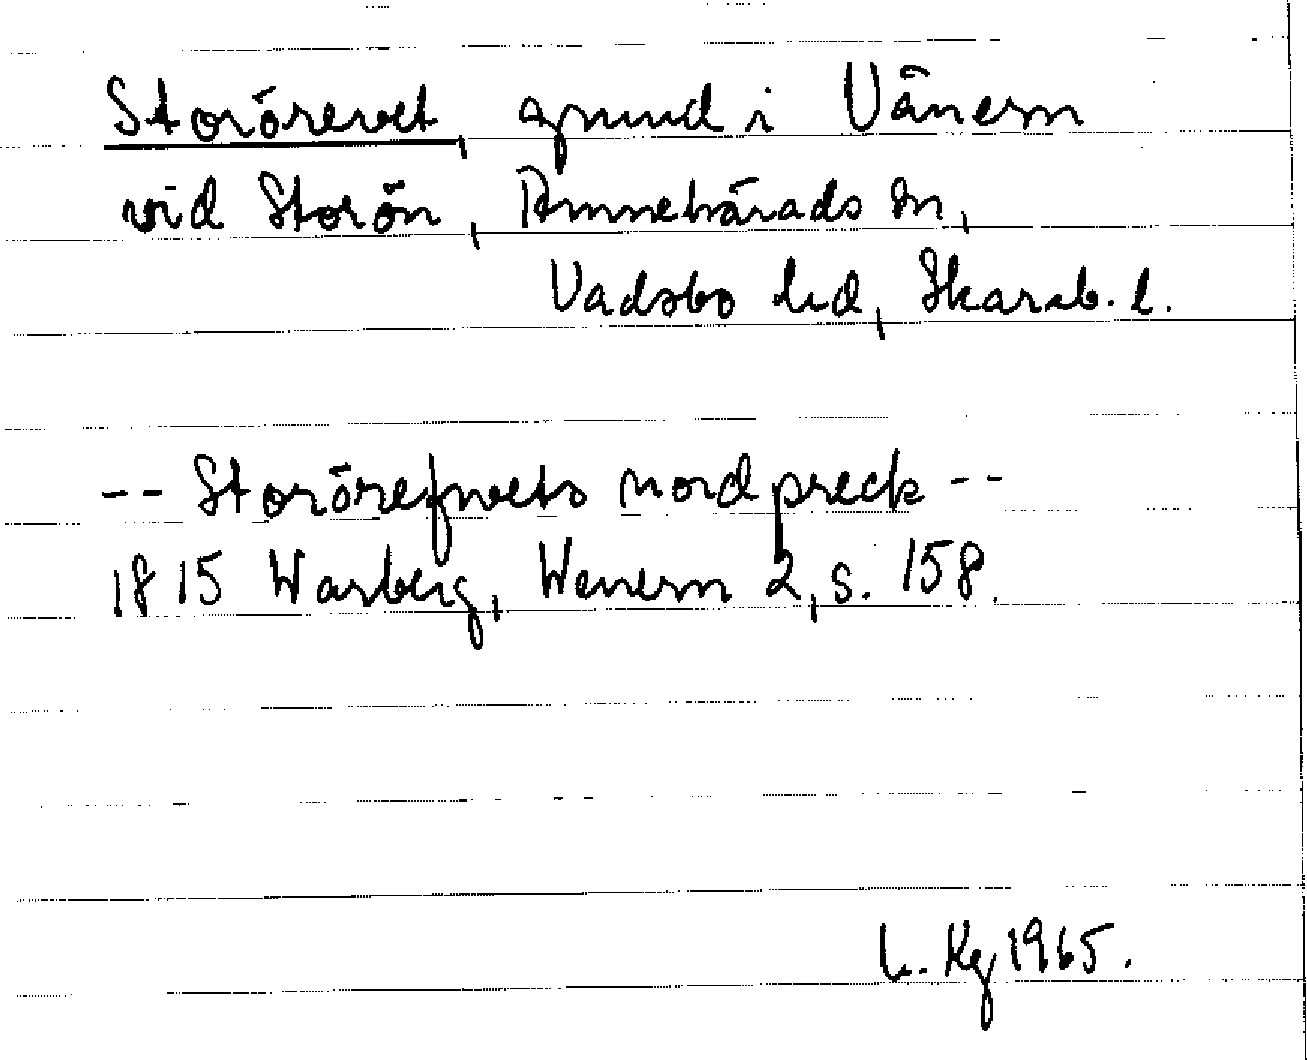 Storörevet, grund i Vänern
vid Storön, Amnehärads sn,
Vadsbo hd, Skarab. l.
-- Storörefwets nordpreck --
1815 Warberg, Wenern 2, s. 158.
L. Kg 1965.